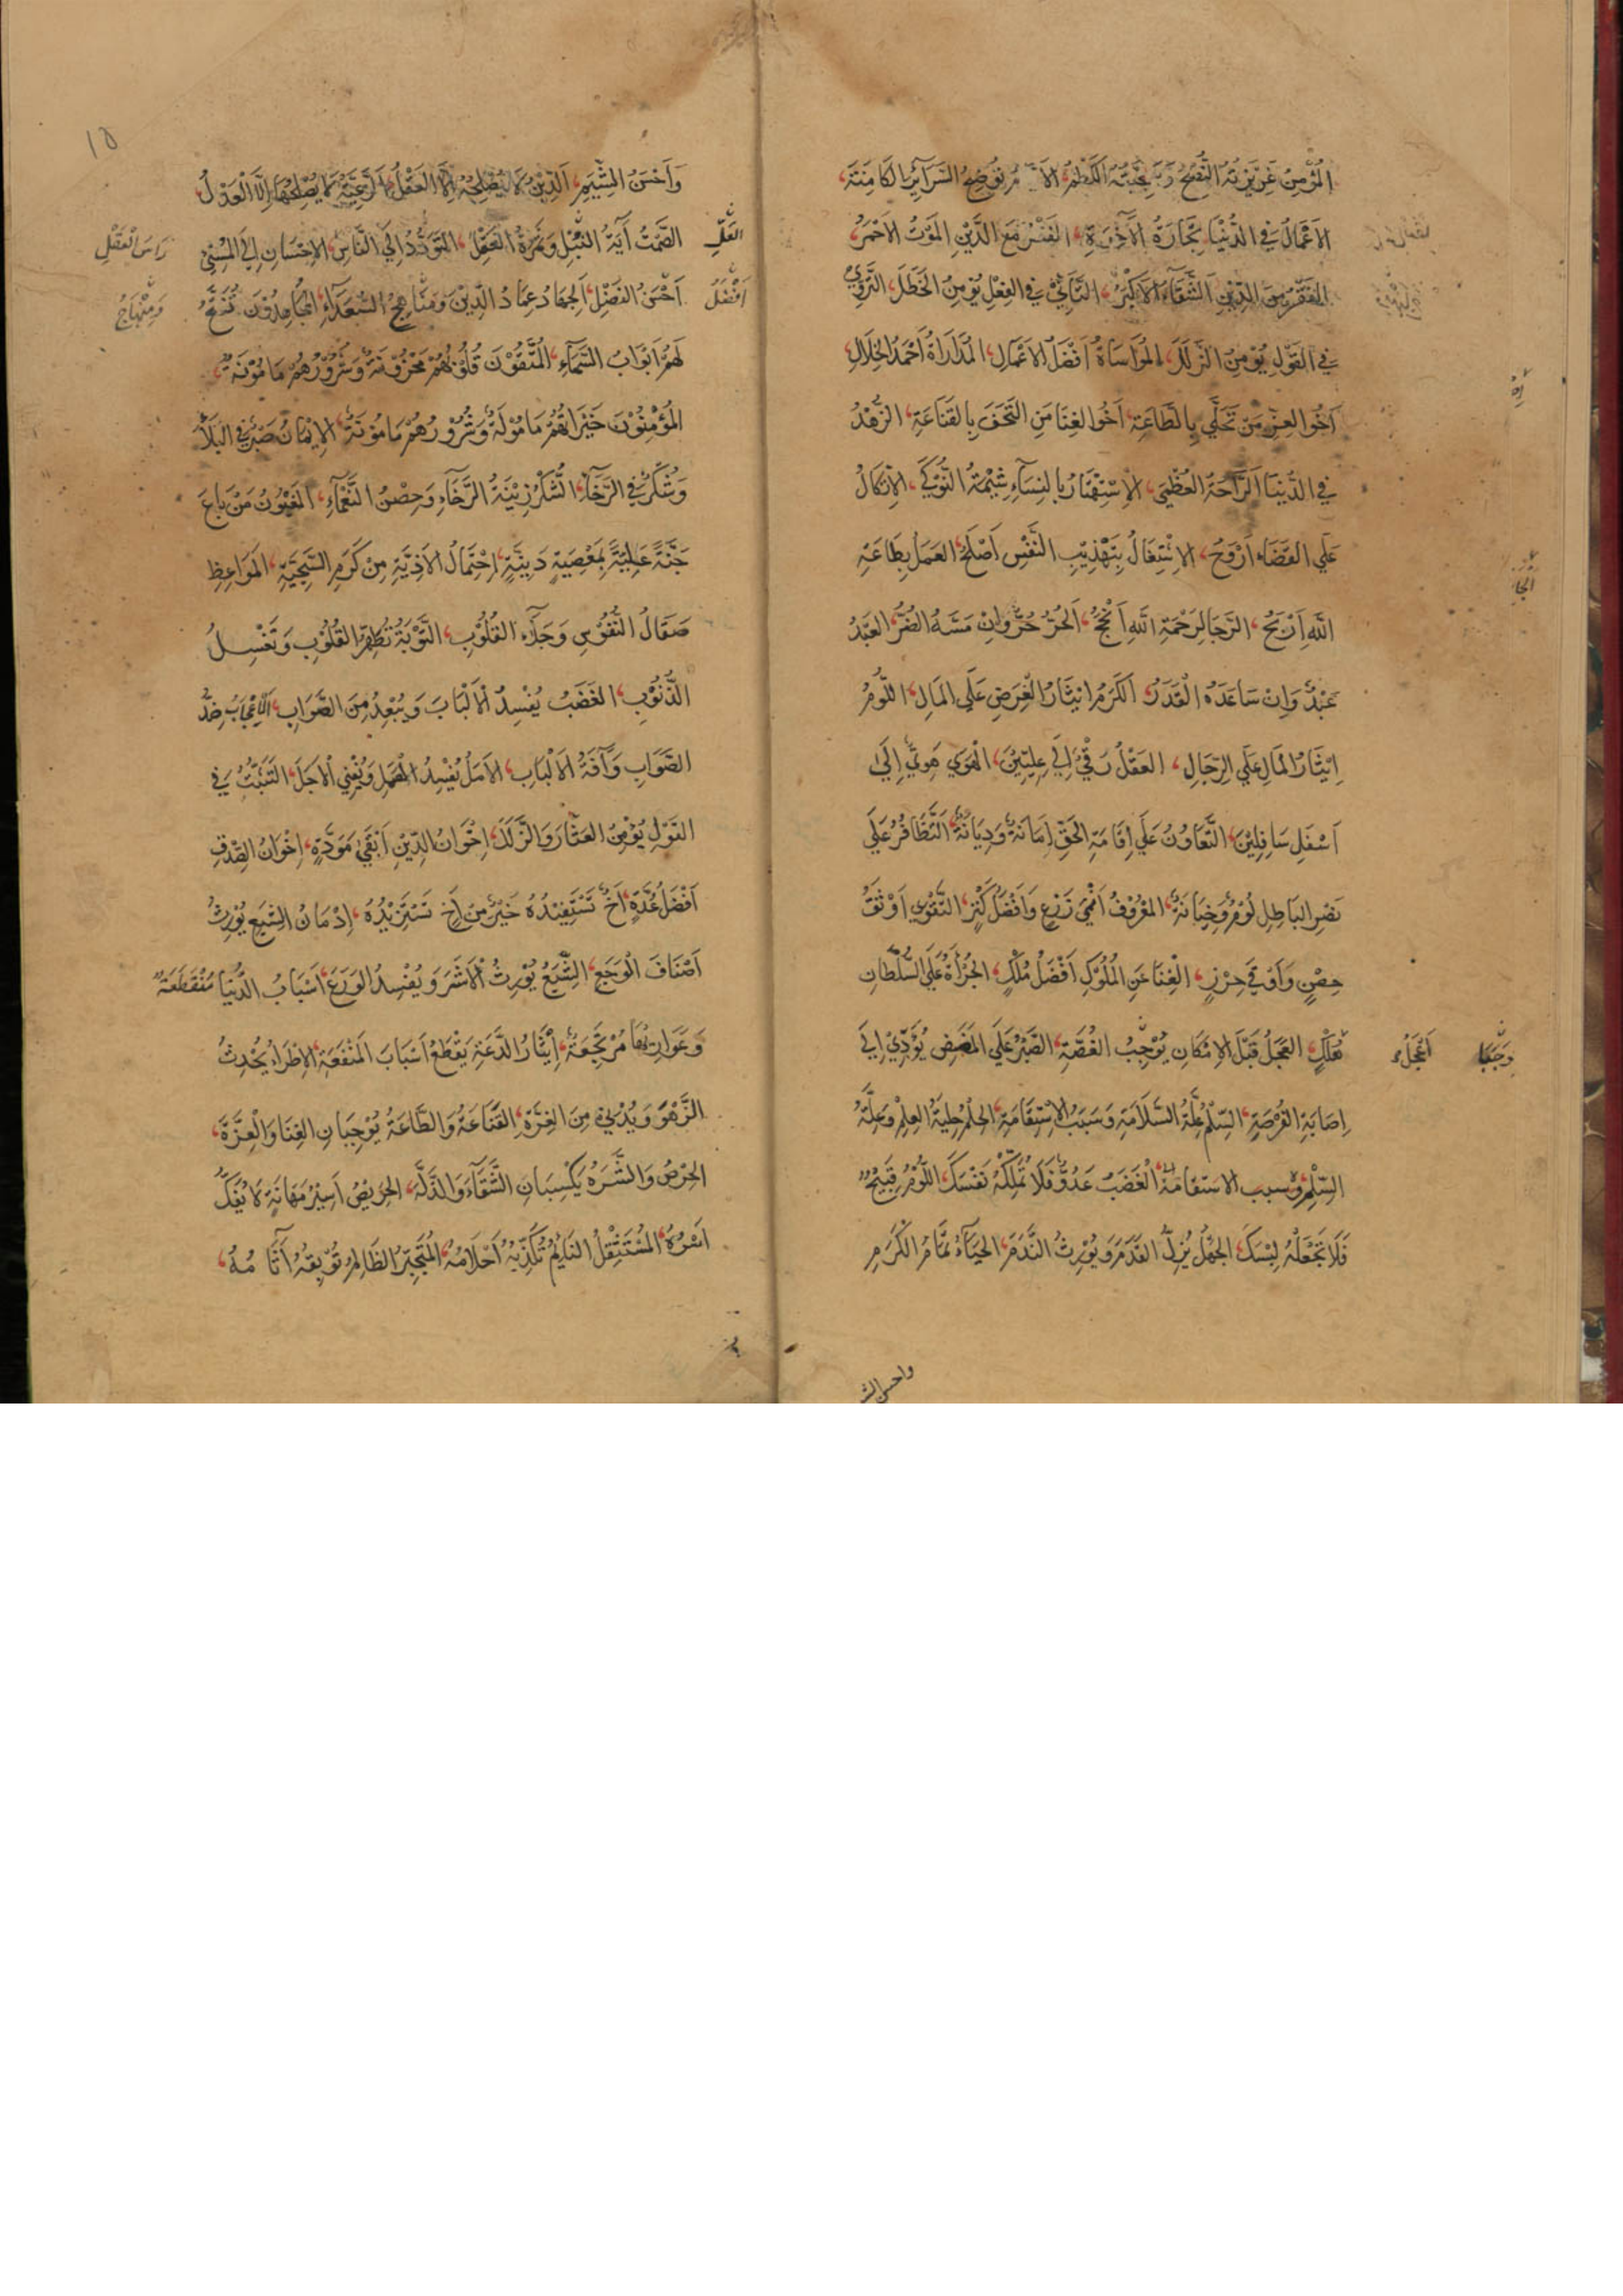 المُؤْمِنُ غَرِيْزَتُهُ النُّصْحُ وَسَجِيَّتُهُ الكَظْمُ، يُوضِحُ السَّرَائِرَ الكَامِنَةَ،
الاَعْمَالُ فِي الدُّنْيَا تِجَارَةُ الآخِرَةِ، الفَقْرُ مَعَ الدَّيْنِ المَوْتُ الاَحْمَرُ،
المُفْقَرُ مِنَ الدِّيْنِ الشَّقَاءُ الاَكْبَرُ، التَّأَنِّيْ فِي الفِعْلِ يُؤْمِنُ الخَطَلَ، التَّرَوِّيْ
فِي القَوْلِ يُؤْمِنُ الزَّلَلَ، المُوَاسَاةُ اَفْضَلُ الاَعْمَالِ، المُدَارَاةُ اَحْمَدُ الخِلَالِ
اَخُو العِزِّ مَنْ تَحَلَّي بِالطَّاعَةِ، اَخُو الغِنَا مَنِ التَحَفَ بِالقَنَاعَةِ، الزُّهْدُ
فِي الدُّنْيَا الرَّاحَةُ العُظْمَي، الاِسْتِهْتَارُ بِالنِسَاءِ شِيْمَةُ النَّوْكَي، الاِتِّكَالُ
عَلَي القَضَاء اَرْوَحُ، الاِشْتِغَالُ بِتَهْذِيْبِ النَّفْسِ اَصْلَحُ، العَمَلُ بِطَاعَةِ
اللّٰهِ اَرْبَحُ، الرَّجَا لِرَحْمَةِ اللّٰهِ اَنْجَحُ، اَلحُرُّ حُرٌّ وَاِنْ مَسَّهُ الضُّرُّ، العَبْدُ
عَبْدٌ وَاِنْ سَاعَدَهُ الْقَدَرُ، اَلكَرَمُ اِيْثَارُ الْعِرَضِ عَلَي المَالِ، اللُّومُ
اِيْثَارُ المَالِ عَلَي الرِّجَالِ، العَقْلُ رَقْيٌ اِلَي عِلِيِّيْنَ، الْهَوَي هَوِيٌّ اِلَي
اَسْفَلِ سَافِلِيْنَ، التَّعَاوُنُ عَلَي اِقَامَةِ الحَقِّ اِمَانَةٌ وَدِيَانَةٌ، التَّظَافُرُ عَلَي
نَصْرِ البَاطِلِ لُؤْمٌ وَخِيَانَةٌ، المَعْرُوْفُ اَنْمَي زَرْعٍ وَاَفْضَلُ كَنْزٍ، التَّقْوَي اَوْثَقُ
حِصْنٍ وَاَوْقَي حِرْزٍ، الْغِنَا عَنِ المُلُوْكِ اَفْضَلُ مُلْكٍ، الجُرْأَةُ عَلَي السُّلْطَانِ
اَعْجَلُ هُلْكٍ، العَجَلُ قَبْلَ الاِمْكَانِ يُوْجِبُ الغُصَّةِ، الصَّبْرُ عَلَي المَضَضِ يُؤَدِّيْ اِلَي
اِصَابَةِ الفُرْصَةِ، السِّلْمُ عِلَّةُ السَّلَامَةِ وَسَبَبُ الاِسْتِقَامَةِ، الحِلْمُ حِلْيَةُ العِلْمِ وَعِلَّةُ
السِّلْمِ وَسبب الاستقامة، الْغَضَبُ عَدُوٌّ فَلَا تُمَلِّكْهُ نَفْسَكَ، اللُّؤْمُ قَبِيْحٌ
فَلَا تَجْعَلْهُ لِبْسَكَ، الجَهْلُ يُزِلُّ القَدَمَ وَيُوْرِثُ النَّدَمَ، الحَيَاءُ تَمَامُ الكَرَمِ
واحسن الش
١٥
وَاَحْسَنُ الشِّيَمِ، اَلدِّيْنُ لَا يُصْلِحُهُ اِلَّا العَقْلُ، اَلرَّعِيَّةُ لَا يُصْلِحُهَا اِلَّا الْعَدْلُ
الصَّمْتُ آيَةُ النُّبْلِ وَثَمَرَةُ العَقْلِ، التَّوَدُّدُ اِلَي النَّاسِ رَاسَ الْعَقْلِ، الاِحْسَانِ اِلَي المُسِيْ
اَحْسَنُ الفَضْلِ، الجِهَادُ عِمَادُ الدِّيْنِ وَمِنْهَاجُ السُّعَدَاءِ، المُجَاهِدُوْنَ تُفْتَحُ
لَهُمْ اَبْوَابُ السَّمَاءِ، المُتَّقُوْنَ قُلُوْبُهُمْ مَحْزُوْنَةٌ وَشُرُوْرُهُمْ مَامُوْنَةٌ،
المُؤْمِنُوْنَ خَيْرَاتُهُمْ مَامُوْلَةٌ وَشُرُوْرُهُمْ مَامُوْنَةٌ، الاِيْمَانُ صَبْرٌ فِي البَلَاءِ
وَشُكْرٌ فِي الرَّخَاءِ، الشُّكْرُ زِيْنَةُ الرَّخَاءِ وَحِصْنُ النَّعْمَاءِ، المَغْبُوْنُ مَنْ بَاعَ
جَنَّةً عَلِيَّةً بِمَعْصِيَةٍ دَنِيَّةٍ، اِحْتِمَالُ الاَذِيَّةِ مِنْ كَرَمِ السَّجِيَّةِ، المَوَاعِظِ
صَقَالُ النُّفُوْسِ وَجَلَاءُ القُلُوْبِ، التَّوْبَةُ تُطَهِّرُ القُلُوْبَ وَتَغْسِلُ
الذُّنُوْبِ، الغَضَبُ يُفْسِدُ الْاَلْبَابَ وَيُبْعِدُ مِنَ الصَّوَابِ، اَلْاِعْجَابُ ضِدُّ
الصَّوَابِ وَآفَةُ الاَلْبَابِ، الاَمَلُ يُفْسِدُ العَمَلَ وَيُفْنِي الْاَجَلَ، التَّثَبُّتُ فِي
القَوْلِ يُؤْمِنُ العَثَارَ وَالزَّلَلَ، اِخْوَانُ الدِّيْنِ اَبْقَي مَوَدَّةٍ، اِخْوَانُ الصِّدْقِ
اَفْضَلُ عُدَّةٍ، اَخٌ تَسْتَفِيْدُهُ خَيْرٌ مِنْ اَخٍ تَسْتَزِيْدُهُ، اِدْمَانُ الشِّبَعِ يُوْرِثُ
اَصْنَافَ الْوَجَعِ، الشِّبَعُ يُوْرِثُ الْاَشَرَ وَيُفْسِدُ الْوَرَعَ، اَسْبَابُ الدُّنْيَا مُنْقَطِعَةٌ
وَعَوَارِيْهَا مُرْتَجَعَةٌ، اِيْثَارُ الدَّعَةِ يَقْطَعُ اَسْبَابَ المَنْفَعَةِ، الاِطْرَاءُ يُحْدِثُ
الزَّهْوَ وَيُدْنِيْ مِنَ الغِرَّةِ، القَنَاعَةُ وَالطَّاعَةُ يُوْجِبَانِ الغِنَا وَالْعِزَّةَ،
الحِرْصُ وَالشَّرَهُ يَكْسِبَانِ الشَّقَاءَ وَالذِّلَّةَ، الحَرِيْصُ اَسِيْرُ مَهَانَةٍ لَا يُفَكُّ
اَسْرُهُ، المُسْتَثْقِلُ النَائِمُ تُكَذِّبُهُ اَحْلَامُهُ، المُتَجَبِّرُ الظَالِمُ تُوْبِقُهُ آثَامُهُ،